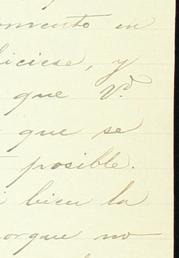 omento en
iciese, y
que V.
que se
posible.
bien la
orque no